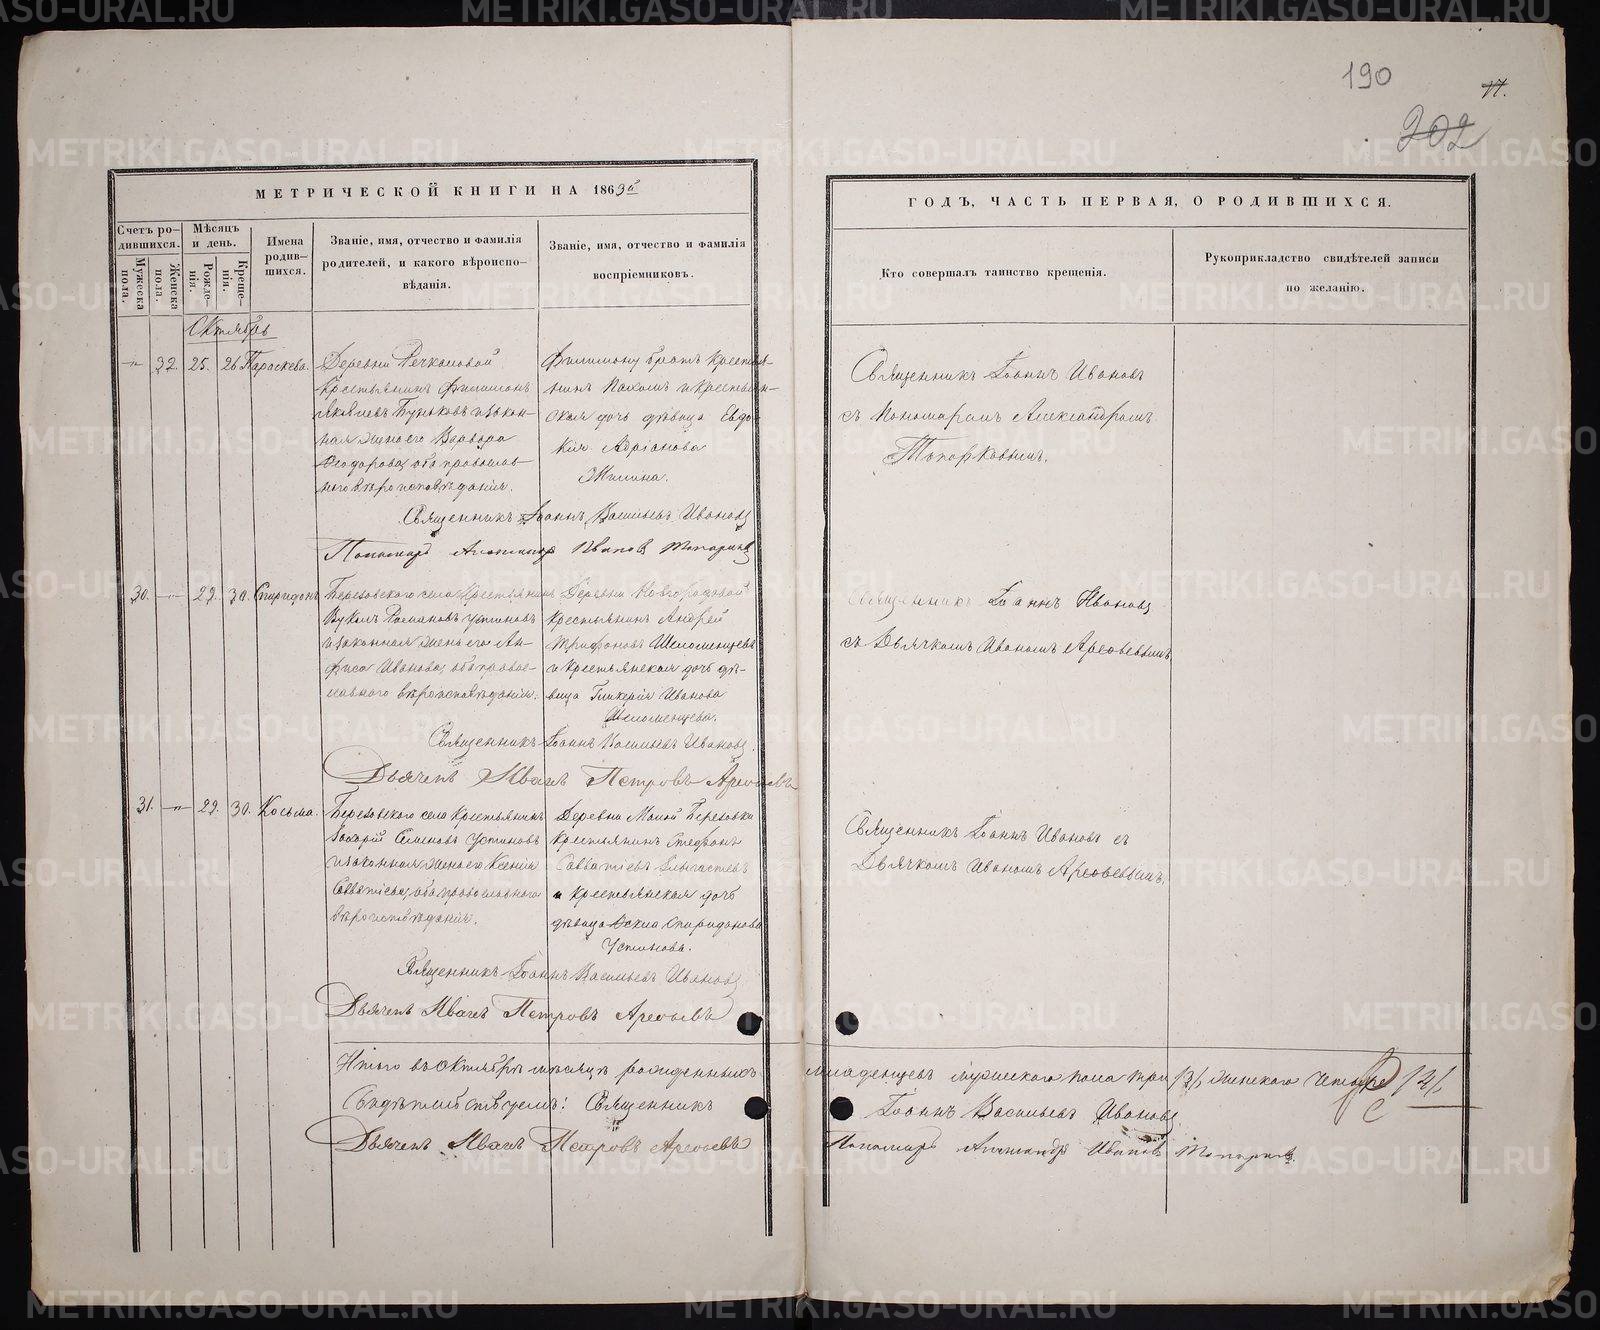 190
17.
202
МЕТРИЧЕСКОЙ КНИГИ НА 1863й
ГОДЪ, ЧАСТЬ ПЕРВАЯ, О РОДИВШИХСЯ.
Счетъ ро-
дившихся.
Мужеска
пола.
Женска
пола.
Мѣсяцъ
и день.
Рожде-
нія.
Креще-
нія.
Имена
родив-
шихся.
Званіе, имя, отчество и фамилія
родителей, и какого вѣроиспо-
вѣданія.
Званіе, имя, отчество и фамилія
воспріемниковъ.
Кто совершалъ таинство крещенія.
Рукоприкладство свидѣтелей записи
по желанію.
Октябрь
32. 25. 26 Параскева.
Деревни Речкаловой
крестьянинъ Филимонъ
Яковлевъ Буньковъ и закон-
ная жена его Варвара
Феодорова, оба православ-
наго вѣроисповѣданія.
Филимону братъ крестья-
нинъ Пахомъ и крестьян-
ская дочь дѣвица Евдо-
кія Адріанова
Жилина.
Священникъ Іоаннъ Ивановъ
съ Пономаремъ Александромъ
Топорковымъ.
Священникъ Іоаннъ Васильевъ Ивановъ
Пономарь Александръ Ивановъ Топорковъ
30. 29. 30. Спиридонъ
Березовскаго села крестьянинъ
Вуколъ Романовъ Устиновъ
и законная жена его Ан-
фиса Иванова, оба право-
славнаго вѣроисповѣданія.
Деревни Новгородовой
крестьянинъ Андрей
Трифоновъ Шеломенцевъ
и крестьянская дочь дѣ-
вица Гликерія Иванова
Шеломенцева.
Священникъ Іоаннъ Ивановъ
съ Дьячкомъ Иваномъ Арефьевымъ.
Священникъ Іоаннъ Васильевъ Ивановъ.
Дьячекъ Иванъ Петровъ Арефьевъ
31. 29. 30. Косьма.
Березовскаго села крестьянинъ
Захарій Семеновъ Устиновъ
и законная жена его Ксенія
Савватіева, оба православнаго
вѣроисповѣданія.
Деревни Малой Березовки
крестьянинъ Стефанъ
Савватіевъ
и крестьянская дочь
дѣвица Спиридонова
Устинова.
Священникъ Іоаннъ Ивановъ съ
Дьячкомъ Иваномъ Арефьевымъ.
Священникъ Іоаннъ Васильевъ Ивановъ
Дьячекъ Иванъ Петровъ Арефьевъ
Итого въ Октябрѣ мѣсяцѣ рожденныхъ младенцевъ мужескаго пола три /3/, женскаго четыре /4/
Свидѣтельствуемъ: Священникъ Іоаннъ Васильевъ Ивановъ
Дьячекъ Иванъ Петровъ Арефьевъ Пономарь Александръ Ивановъ Топорковъ.
METRIKI.GASO-URAL.RU